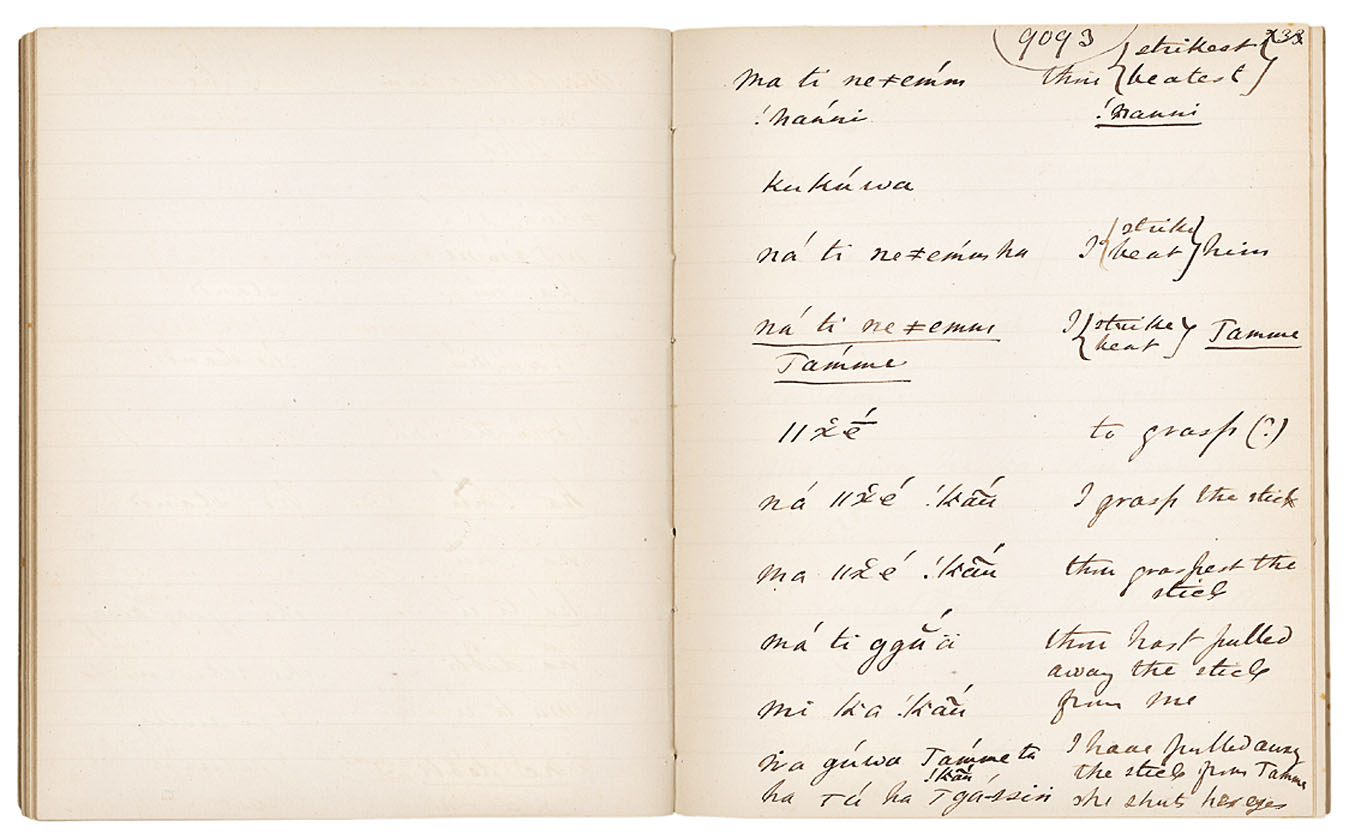 9093
ma ti ne ǂemm thou {strikest beatest}
!nanni !nanni
kukúwa
ná ti ne ǂemm ha I {strike beat} him
ná ti ne ǂemm I {strike beat} Tamme
Támme
ǁẍé to grasp (?)
ná ǁẍé !kã́ũ I grasp the stick
ma ǁẍé !kã́ũ thou graspest the
stick
má ti ggŭ́ ä thou hast pulled
away the stick
mi ka !kã́ũ from me
na gúwa Támme ta I have pulled away
!kã́ũ the stick from Tamme
she shuts her eyes